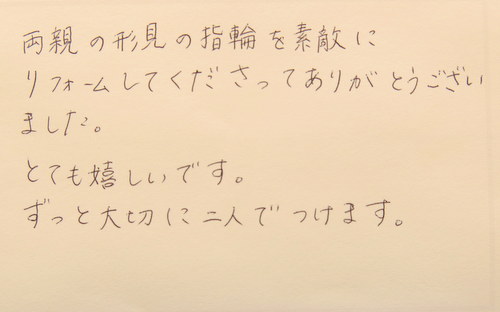 両親の形見の指輪を素敵に
リフォームしてくださってありがとうござい
ました。
とても嬉しいです。
ずっと大切に二人でつけます。